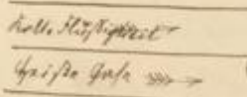 Kalte Flüssigkeit
heiße Gase